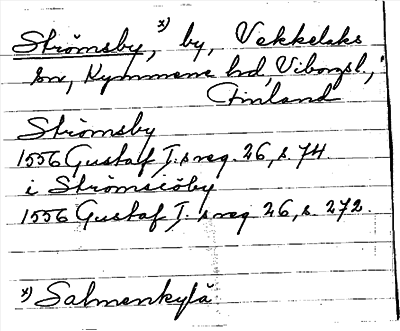 Strömsby, x) by, Vekkelaks
sn, Kymmene hd, Viborgsl.,
Finland
Strömsby
1556 Gustaf I:s reg. 26, s. 74.
i Strömsiöby
1556 Gustaf I:s reg. 26, s. 272.
x) Salmenkylä